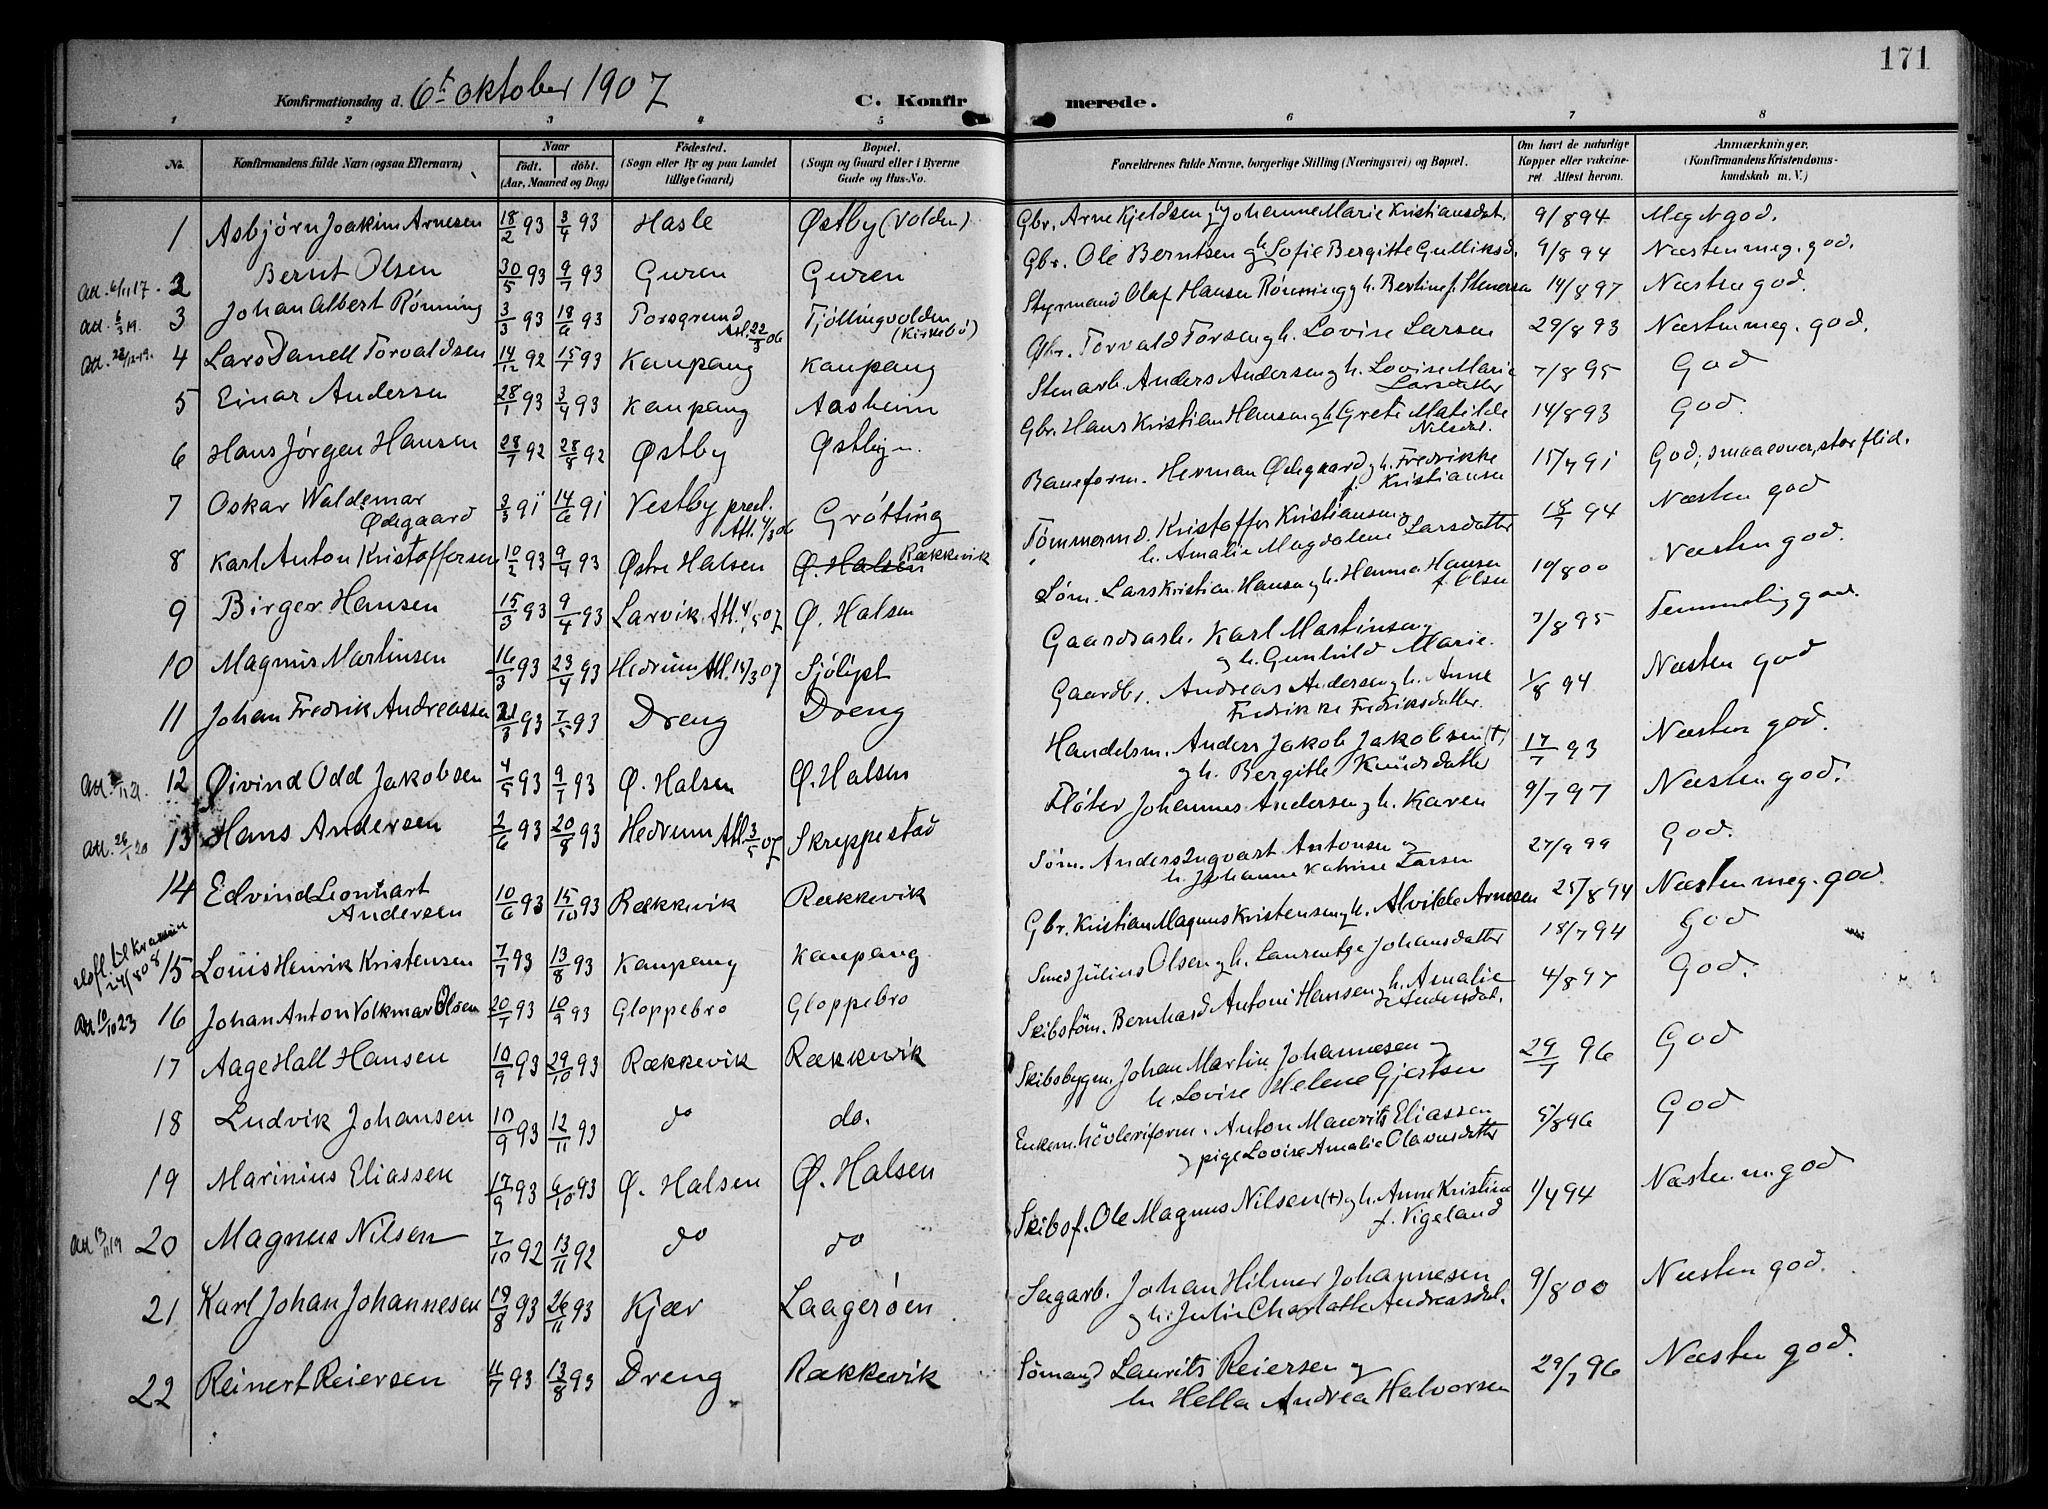 171
Konfirmationsdag d. 6te oktober 1907
C. Konfirmerede.
1 2 3 4 5 6 7 8
No. Konfirmandens fulde Navn (ogsaa Efternavn) Naar født. døbt. (Aar, Maaned og Dag) Fødested. (Sogn eller By og paa Landet tillige Gaard) Bopæl. (Sogn og Gaard eller i Byerne Gade og Hus-No. Forældrenes fulde Navne, borgerlige Stilling (Næringsvei) og Bopæl. Om havt de naturlige Kopper eller vakcineret. Attest herom. Anmærkninger. (Konfirmandens Kristendomskundskab m. V.)
1 Asbjørn Joakim Arnesen 18/2 93 3/4 93 Hasle Østby (Volden) Gbr. Arne Kjeldsen og h. Johanne Marie Kristiansdat. 9/8 94 Meget god.
Att. 6/11 17. 2 Bernt Olsen 30/5 93 9/7 93 Guren Guren Gbr. Ole Berntsen og h. Sofie Bergitte Gulliksd. 9/8 94 Næsten meg. god.
Att. 6/3 19. 3 Johan Albert Rønning 3/3 93 18/6 93 Porsgrund Att. 22/3 06 Tjøllingvolden (Kirkebø) Styrmand Olaf Hansen Rønning og h. Bertine f. Stenersen 14/8 97 Næsten god.
Att. 4 Lars Danell Torvaldsen 14/12 92 15/1 93 Kaupang Kaupang Gbr. Torvald Torsen og h. Lovise Larsen 29/8 93 Næsten meg. god.
5 Einar Andersen 28/1 93 3/4 93 Kaupang Aasheim Stenarb. Anders Andersen og h. Lovise Marie Larsdatter 7/8 95 God
6 Hans Jørgen Hansen 28/7 92 28/8 92 Østby Østby Gbr. Hans Kristian Hansen og h. Grete Matilde Nilsdat. 14/8 93 God.
7 Oskar Waldemar Ødegaard 3/3 91 14/6 91 Vestby præst. Att. 4/3 06 Grøtting Baneform. Herman Ødegaard og h. Fredrikke f. Kristiansen 15/7 91 God; smaa evner, stor flid.
8 Karl Anton Kristoffersen 10/2 93 9/4 93 Østre Halsen Ø. Halsen Rækkevik Tømmermd. Kristoffer Kristiansen og h. Amalie Magdalene Larsdatter 18/7 94 Næsten god
9 Birger Hansen 15/3 93 9/4 93 Larvik Att. 4/5 07 Ø. Halsen Søm. Lars Kristian Hansen og h. Hanna Hansen f. Olsen 10/8 00 Næsten god.
10 Magnus Martinsen 16/3 93 23/4 93 Hedrum Att. 15/3 07 Sjølyst Gaardsarb. Karl Martinsen og h. Gunhild Marie. 7/8 95 Temmelig god.
11 Johan Fredrik Andreassen 21/3 93 7/5 93 Dreng Dreng Gaardbr. Andreas Andersen og h. Anne Fredrikke Fredriksdatter. 1/8 94 Næsten god
Att. 21. 12 Øivind Odd Jakobsen 4/5 93 9/7 93 Ø. Halsen Ø. Halsen Handelsm. Anders Jakob Jakobsen (†) og h. Bergitte Knudsdatter 17/7 93 Næsten god.
Att. 26/1 20 13 Hans Andersen 2/6 93 20/8 93 Hedrum Att. 3/5 07 Skreppestad Fløter Johannes Andersen og h. Karen 9/7 97 Næsten god.
14 Edvind Leonhart Andersen 10/6 93 15/10 93 Rækkevik Rækkevik Søm. Anders Ingvart Antonsen og h. Johanne Katrine Larsen 27/9 99 God.
24/8 08 15 Louis Henrik Kristensen 7/7 93 13/8 93 Kaupang Kaupang Gbr. Kristian Magnus Kristensen og h. Alvilde Arnesen 25/8 94 Næsten meg. god.
Att 10/10 23 16 Johan Anton Volkmar Olsen 20/7 93 10/9 93 Gloppebro Gloppebro Smed Julius Olsen og h. Laurentze Johansdatter 18/7 94 God
17 Aage Hall Hansen 10/9 93 29/10 93 Rækkevik Rækkevik Skibstøm. Bernhard Antoni Hansen og h. Amalie Andersdat. 4/8 97 God.
18 Ludvik Johansen 10/9 93 12/11 93 do do. Skibsbygm. Johan Martin Johannesen og h. Lovise Helene Gjertsen 29/7 96 God
19 Marinius Eliassen 17/9 93 6/10 93 Ø. Halsen Ø. Halsen Enkem. høvleriform. Anton Maurits Eliassen og pige Lovise Amalie Olavusdatter 5/8 96 God
Att 13/11 19 20 Magnus Nilsen 7/10 92 13/11 92 do do Skibsf. Ole Magnus Nilsen (†) og h. Anne Kristine f. Vigeland 1/7 94 Næsten m. god
21 Karl Johan Johannesen 19/8 93 26/11 93 Kjær Laagerøen Sagarb. Johan Hilmer Johannesen og h. Julie Charlotte Andreasdat. 9/8 00 Næsten god.
22 Reinert Reiersen 11/7 93 13/8 93 Dreng Rækkevik Sømand Laurits Reiersen og h. Hella Andrea Halvorsen 29/7 96 Næsten god.